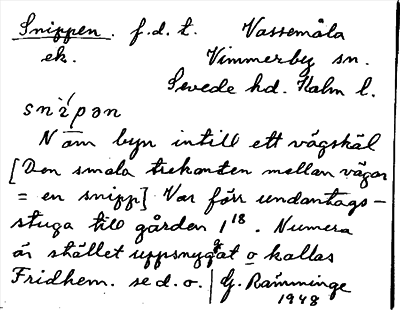 Snippen. f.d.t. Vassemåla
ek. Vimmerby sn.
Sevede hd. Kalm l.
snìpən
N om byn intill ett vägskäl
[Den smala trekanten mellan vägar
= en snipp] Var förr undantags-
stuga till gården 1¹⁸. Numera
är stället uppsnyggat o kallas
Fridhem. se d.o. G. Ramminge
1948